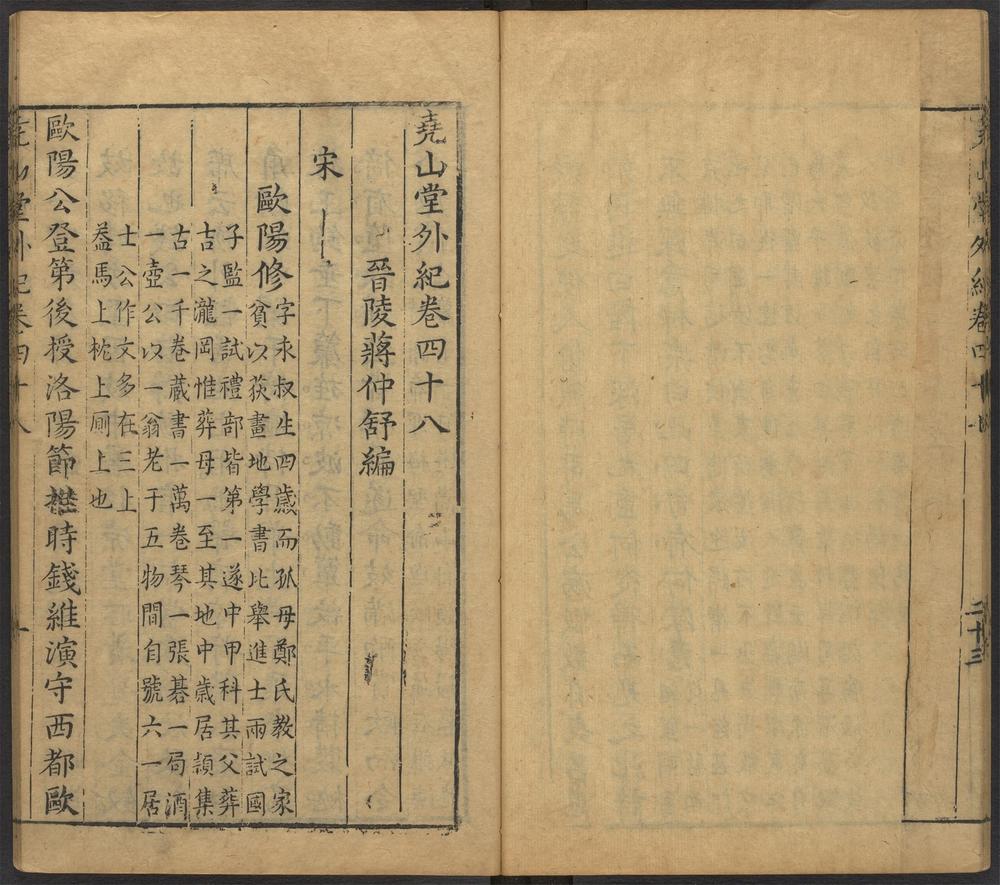 堯山堂外紀卷四十七
二十三
堯山堂外紀卷四十八
晉陵蔣仲舒編
宋
歐陽修
字永叔生四歲而孤母鄭氏教之家
貧以荻畫地學書比舉進士兩試國
子監一試禮部皆第一遂中甲科其父葬
吉之瀧岡惟葬母一至其地中歲居潁集
古一千卷藏書一萬卷琴一張碁一局酒
一壺公以一翁老于五物間自號六一居
士公作文多在三上
葢馬上枕上厠上也
歐陽公登第後授洛陽節時錢維演守西都歐
堯山堂外紀卷四十八
一